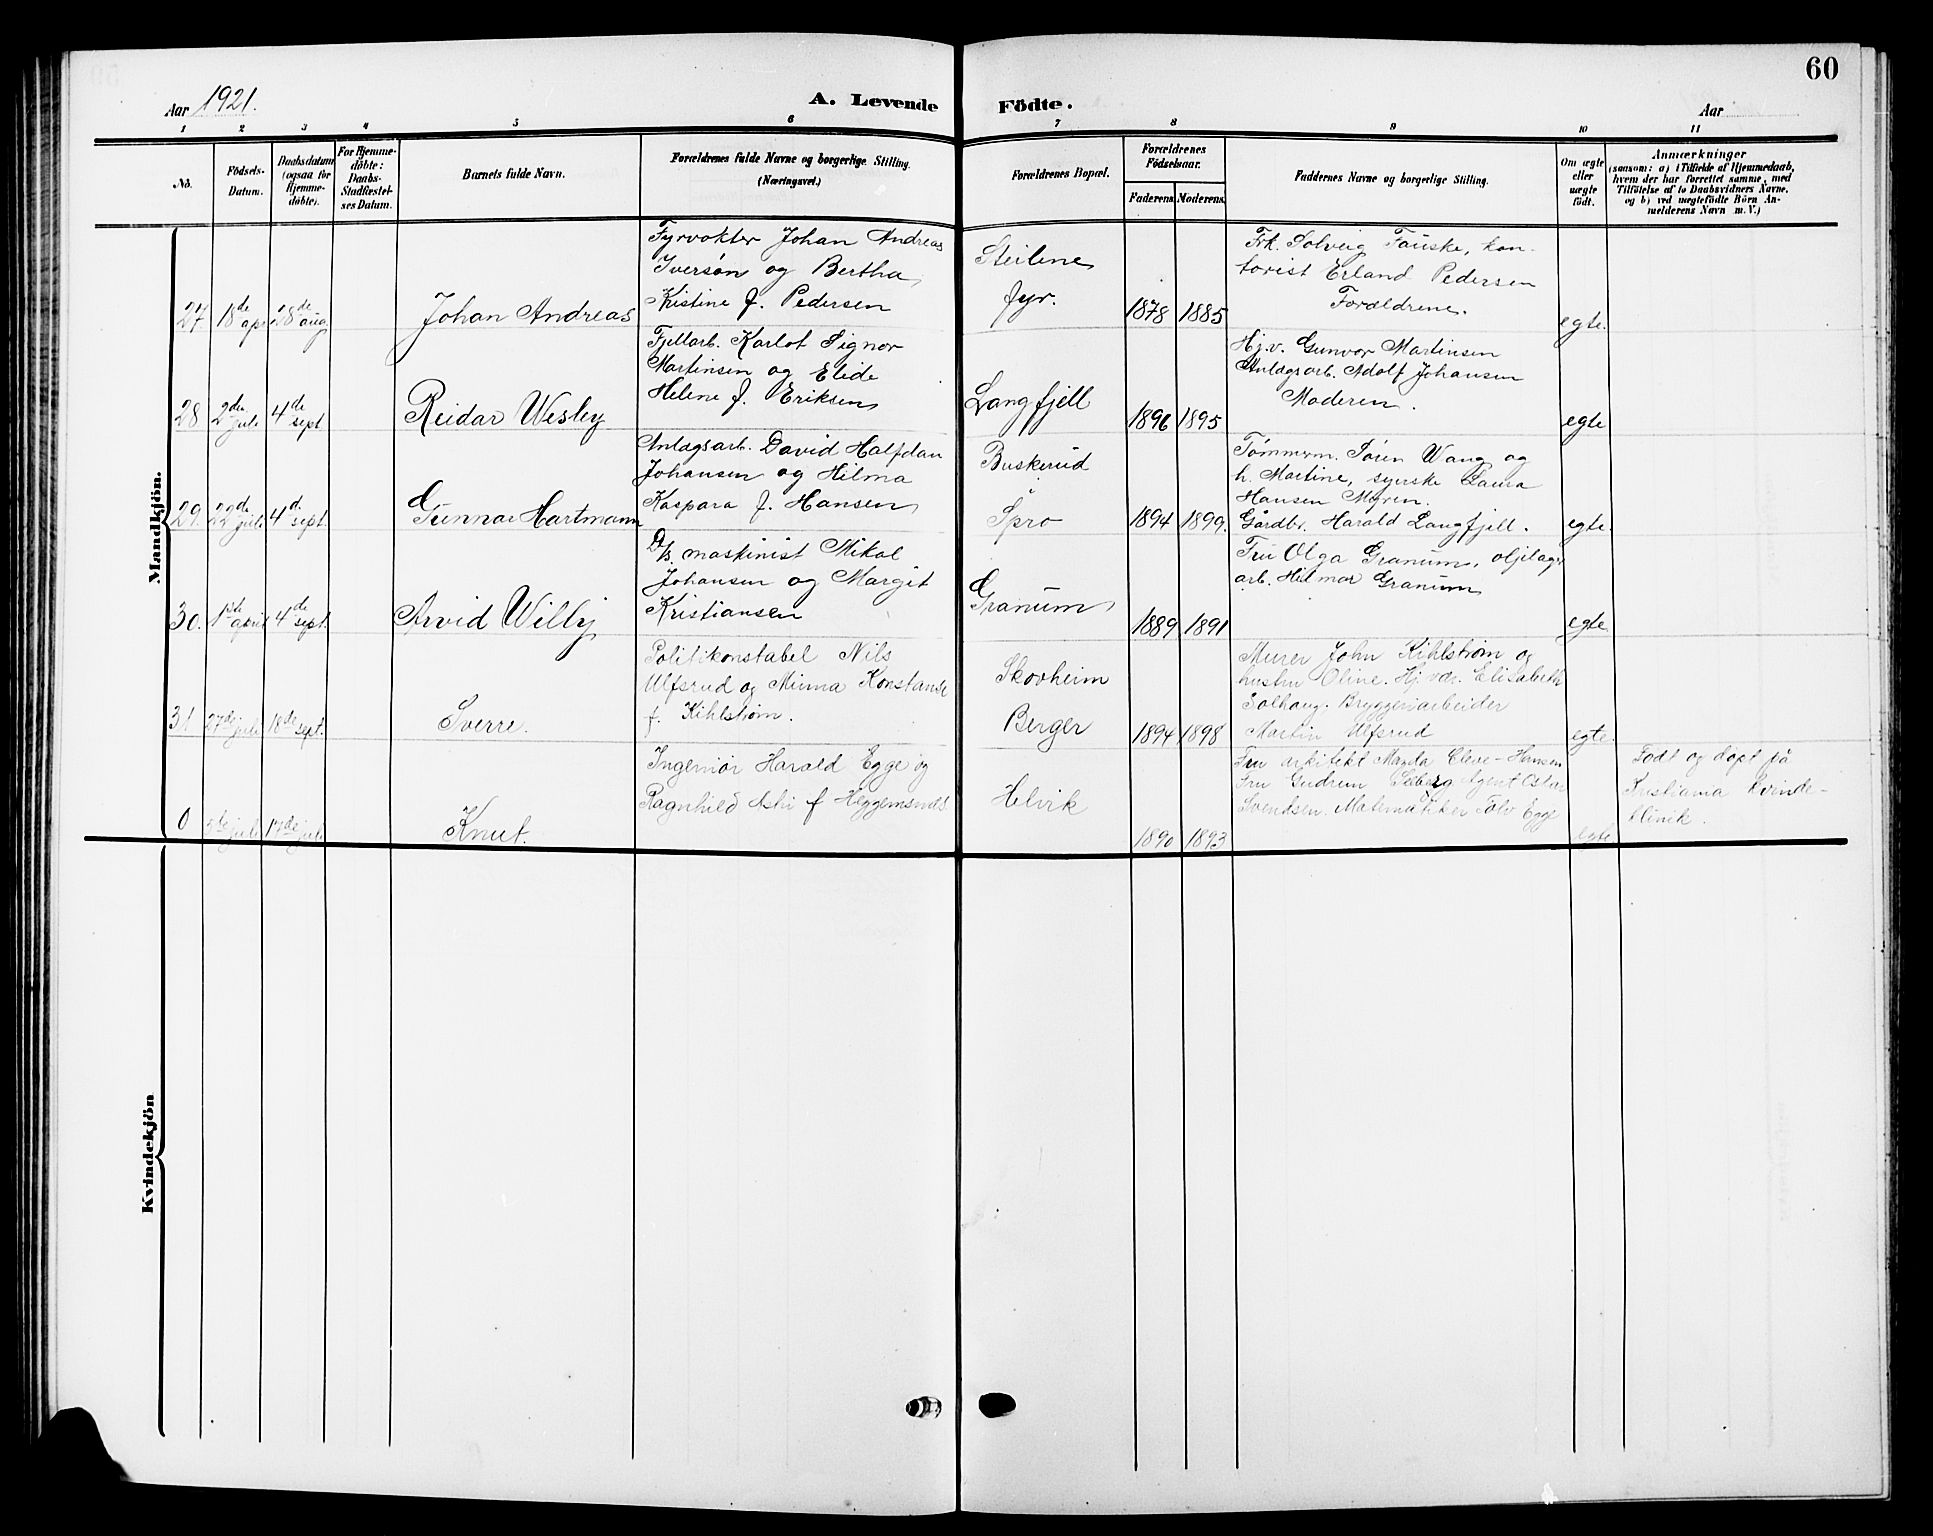 60
Aar 1921.
A. Levende Födte.
Aar
1 2 3 4 5 6 7 8 9 10 11
No.
Födsels-Datum.
Daabsdatum (ogsaa for Hjemme-döbte).
For Hjemme-döbte: Daabs-Stadfæstel-ses Datum.
Barnets fulde Navn.
Forældrenes fulde Navne og borgerlige Stilling.
(Næringsvei.)
Forældrenes Bopæl.
Forældrenes Födselsaar.
Faderens. Moderens.
Faddernes Navne og borgerlige Stilling.
Om ægte eller uægte födt.
Anmærkninger
(saasom: a) i Tilfælde af Hjemmedaab,
hvem der har forrettet samme, med
Tilföielse af to Daabsvidners Navne,
og b) ved uægtefödte Börn An-
melderens Navn m. V.)
Mandkjön.
27 18de apr 28de aug.
Johan Andreas
Fyrvokter Johan Andreas
Iversøn og Bertha
Kristine f. Pedersen
Steilene
fyr.
1878 1885
Frk. Solveig Fauske, kon-
torist Erland Pedersen
Forældrene.
egte.
28 2den juli 4de sept
Reidar Wesley
Fjellarb. Karlot Signor
Martinsen og Elide
Helene f. Eriksen
Langfjell
1896 1895
Hj.v. Gunvor Martinsen
Anlægsarb. Adolf Johansen
Moderen.
egte
29. 22de juli 4d. sept.
Gunnar Hartmann
Anlægsarb. David Halfdan
Johansen og Hilma
Kaspara f. Hansen
Buskerud
Spro
1894 1899.
Tømmerm. Søren Wang og
h. Martine, syerske Laura
Hansen Myren.
Gårdbr. Harald Langfjell.
egte.
30. 1ste april 4de sept.
Arvid Willy
D/s. maskinist Mikal
Johansen og Margit
Kristiansen
Granum
1889 1891
Fru Olga Granum, oljelags
arb. Hilmar Granum
egte
31 27de juli 18de sept.
Sverre.
Politikonstabel Nils
Ulfsrud og Minna Konstanse
f. Kihlstrøm.
Skovheim
Berger
1894 1898
Murer John Kihlstrøm og
hustru Oline. Hj.vær. Elisabeth
Solhaug. Bryggeriarbeider
Martin Ulfsrud
egte.
0 5te juli 17de juli
Knut.
Ingeniør Harald Egge og
Ragnhild Asti f Heggemsnes
Helvik
1890 1893
Fru arkitekt Magda Cleve-Hansen
Fru Gudrun Seeberg Agent Oskar
Svendsen. Matematiker Tolv Egge
egte
Født og døpt på
Kristiania Kvinde-
klinik.
Kvindekjön